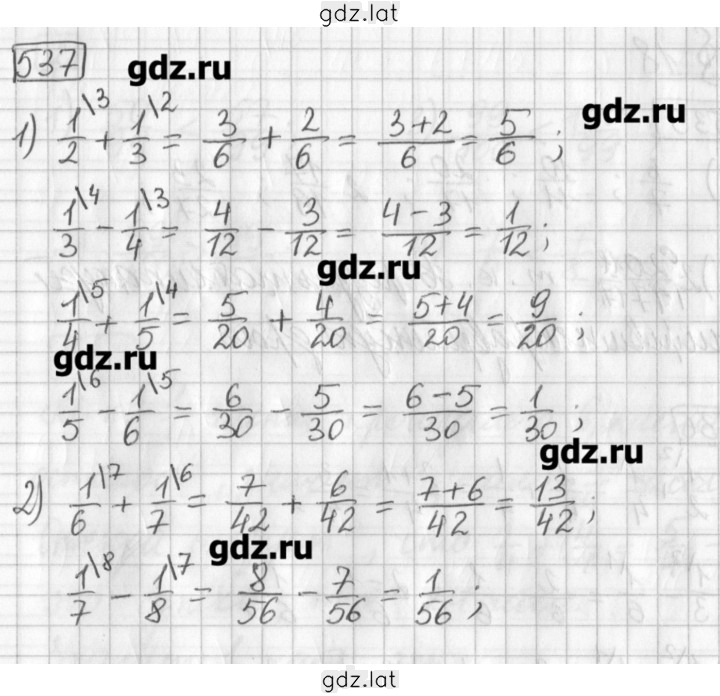 gdz.lat
537
gdz.ru
gdz.ru
1) 1\3/2 + 1\2/3 = 3/6 + 2/6 = (3+2)/6 = 5/6;
1\4/3 - 1\3/4 = 4/12 - 3/12 = (4-3)/12 = 1/12;
gdz.ru
1\5/4 + 1\4/5 = 5/20 + 4/20 = (5+4)/20 = 9/20;
gdz.ru
1\6/5 - 1\5/6 = 6/30 - 5/30 = (6-5)/30 = 1/30;
gdz.ru
2) 1\7/6 + 1\6/7 = 7/42 + 6/42 = (7+6)/42 = 13/42;
gdz.ru
1\8/7 - 1\7/8 = 8/56 - 7/56 = 1/56;
gdz.lat